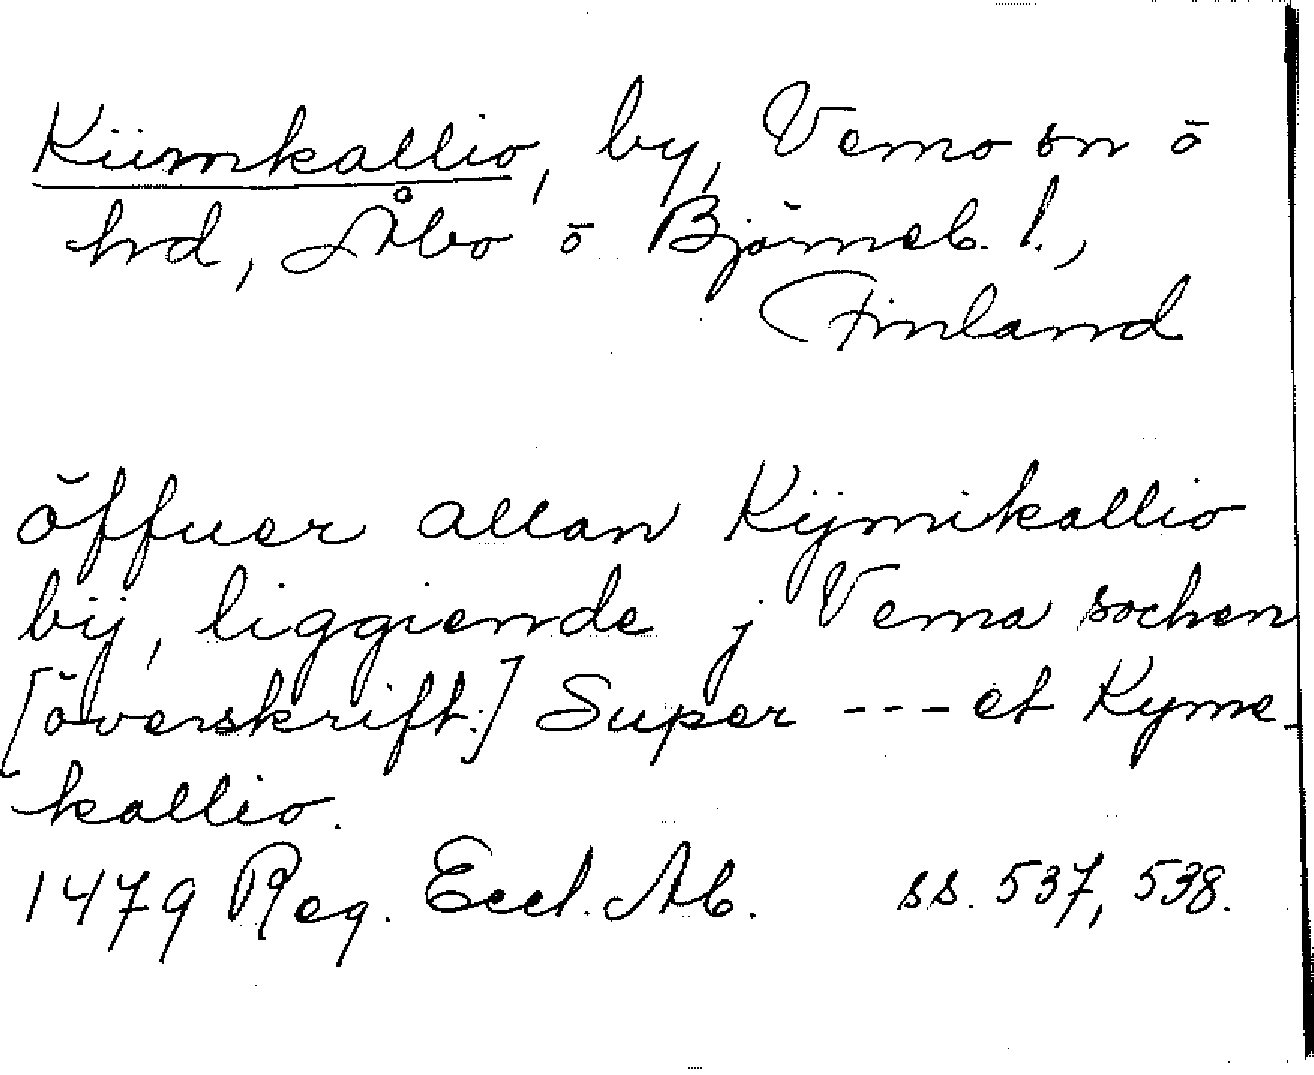 Kiimkallio, by, Vemo sn ō
hd, Åbo ō Björneb. l.,
Finland
öffuer allan Kijmikallio
bij, liggiende j Vema sochen
[överskrift:] Super --- et Kyme-
kallio.
1479 Reg. Eccl. Ab. ss. 537, 538.